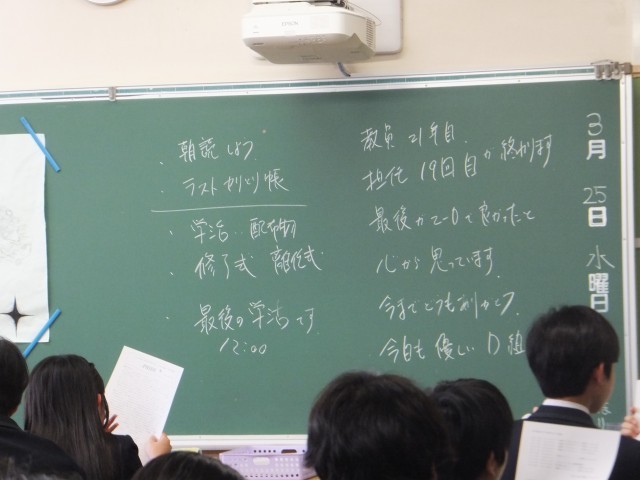 EPSON
3月25日水曜日
教員 21年目
担任 19回目が終わります
最後が2-Dで良かったと
心から思っています.
今までどうもありがとう.
今日も優しいD組
・朝読しよう
・ラストやりとり帳
・学活‥配布物
・修了式 離任式
・最後の学活です
12:00